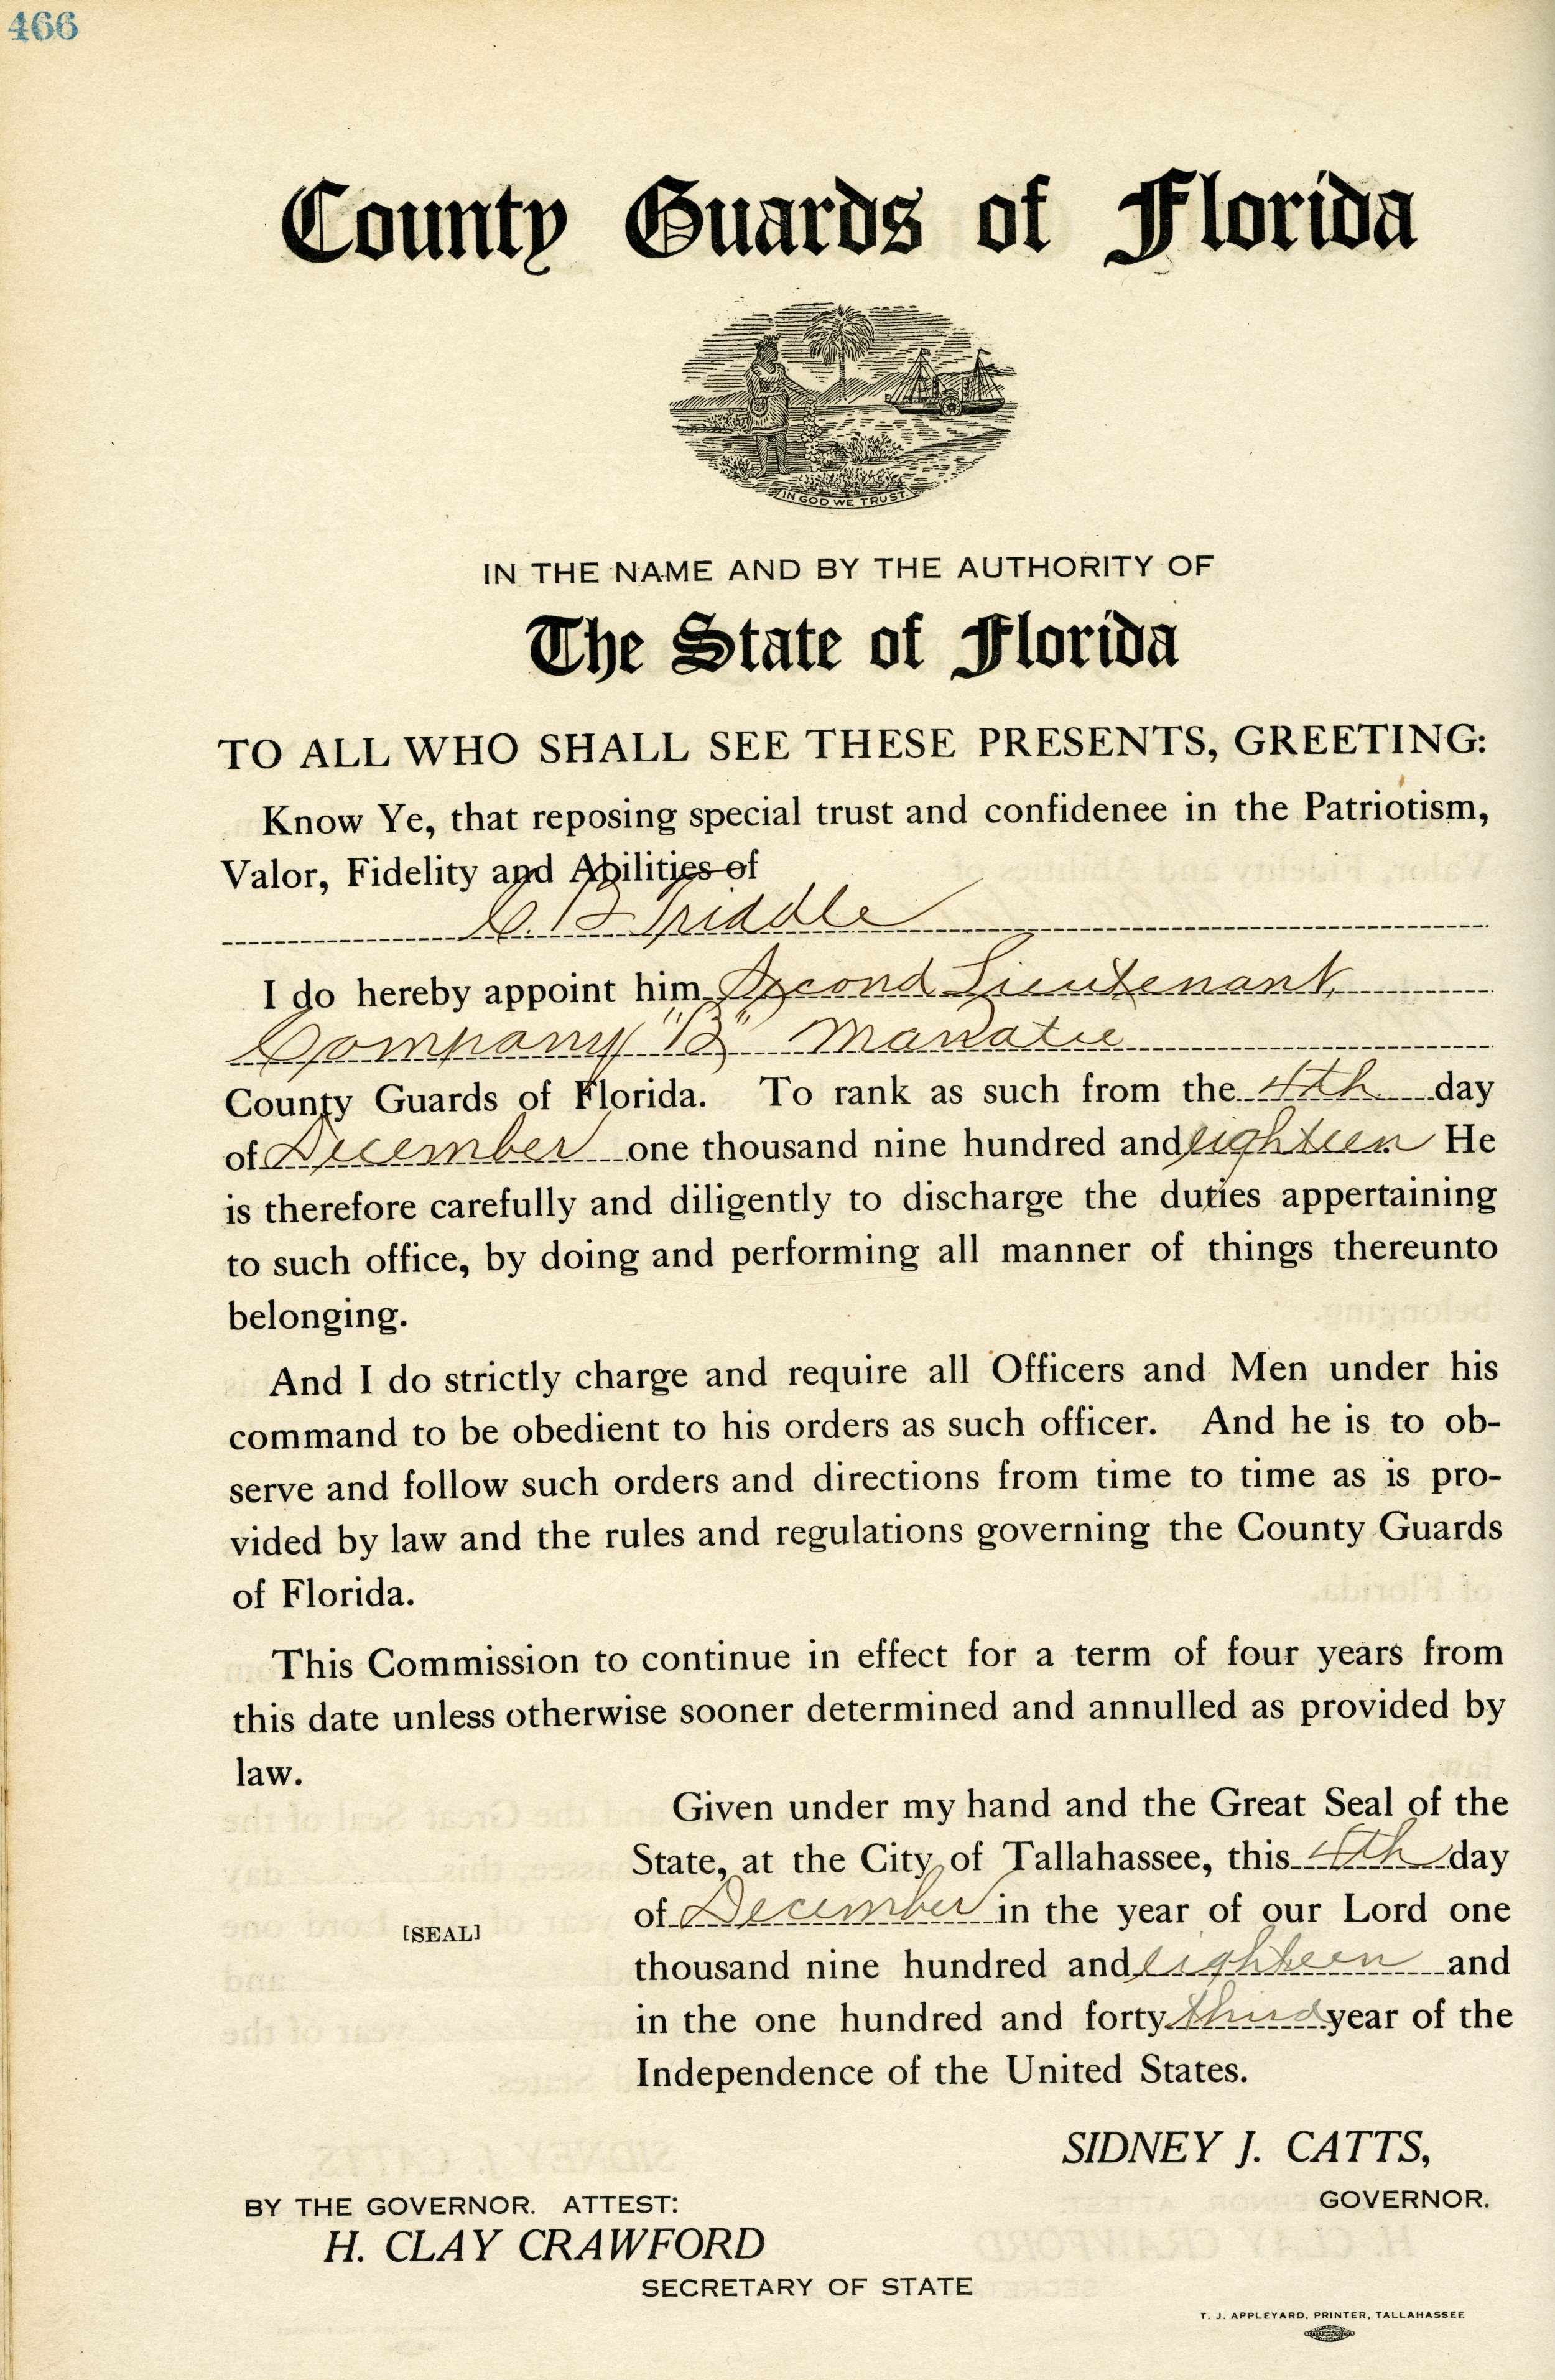 466
County Guards of Florida
IN GOD WE TRUST.
IN THE NAME AND BY THE AUTHORITY OF
The State of Florida
TO ALL WHO SHALL SEE THESE PRESENTS, GREETING:
Know Ye, that reposing special trust and confidenee in the Patriotism,
Valor, Fidelity and Abilities of
C. B. Triddle
I do hereby appoint him Second Lieutenant,
Company "B" Manatee
County Guards of Florida. To rank as such from the 4th day
of December one thousand nine hundred and eighteen. He
is therefore carefully and diligently to discharge the duties appertaining
to such office, by doing and performing all manner of things thereunto
belonging.
And I do strictly charge and require all Officers and Men under his
command to be obedient to his orders as such officer. And he is to ob-
serve and follow such orders and directions from time to time as is pro-
vided by law and the rules and regulations governing the County Guards
of Florida.
This Commission to continue in effect for a term of four years from
this date unless otherwise sooner determined and annulled as provided by
law.
Given under my hand and the Great Seal of the
State, at the City of Tallahassee, this 4th day
of December in the year of our Lord one
[SEAL]
thousand nine hundred and eighteen and
in the one hundred and forty third year of the
Independence of the United States.
SIDNEY J. CATTS,
GOVERNOR.
BY THE GOVERNOR. ATTEST:
H. CLAY CRAWFORD
SECRETARY OF STATE
T. J. APPLEYARD, PRINTER, TALLAHASSEE